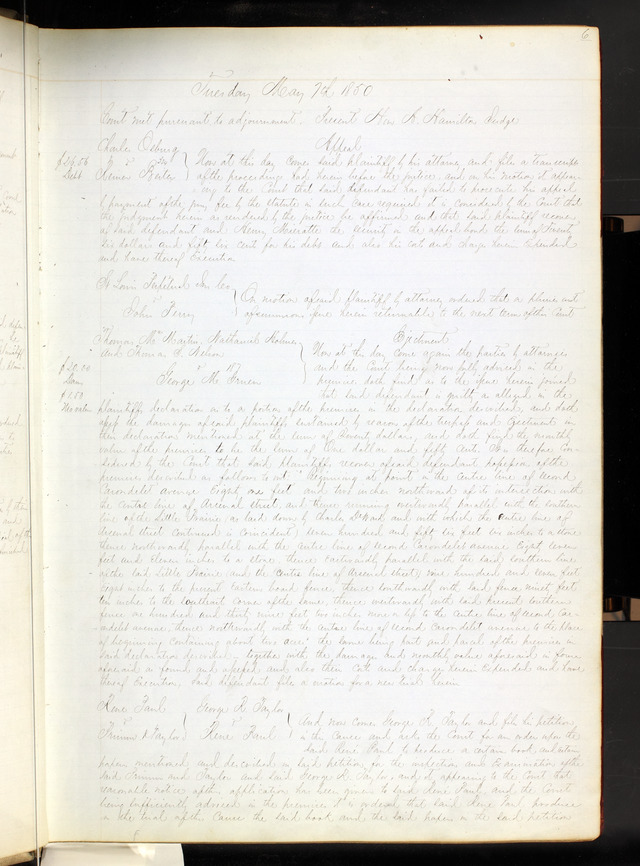 6
Tuesday May 7th 1850
Court met pursuant to adjournment. Present Hon A. Hamilton Judge
Charles Osburg Appeal
$26.56 vs Now at this day comes said Plaintiff by his attorney and files a transcript
Debt of the proceedings had herein before the justice, and on his motion it appear-
ing to the Court that said defendant has failed to prosecute his appeal
by payment of the jury fee by the statute in such case required it is considered by the Court that
the judgment herein as rendered by the justice be affirmed and that said plaintiff recover
of said defendant and Henry the security in the appeal bond the sum of Twenty
six dollars and fifty six cents for his debt and also his costs and charges herein expended
and have thereof Execution
St Louis Perpetual Ins Co
vs On motion of said plaintiff by attorney ordered that a pluries writ
John Ferry of summons issue herein returnable to the next term of this Court
Thomas Martin, Nathaniel Holmes Ejectment
and Thomas Nelson Now at this day come again the parties by attorneys
$20.00 vs and the Court being now fully advised in the
Dam George M. premises doth find as to the issue herein joined
$1.50 that said defendant is guilty as alleged in the
plaintiffs declaration as to a portion of the premises in the declaration described, and doth
assess the damages of said plaintiffs sustained by reason of the trespass and Ejectment in
their declaration mentioned at the sum of Twenty dollars, and doth find the monthly
value of the premises to be the sum of One dollar and fifty cents. It is therefore con-
sidered by the Court that said plaintiffs recover of said defendant possession of the
premises described as follows to wit "Beginning at point in the centre line of second
Carondelet avenue Eighty one feet and two inches northward of its intersection with
the centre line of Arsenal street, and thence running westwardly parallel with the southern
line of the Little Prairie, as laid down by Charles DeWard and with which the centre line of
Arsenal street continued is coincident, seven hundred and fifty six feet six inches to a stone
thence northwardly parallel with the centre line of second Carondelet avenue Eighty seven
feet and eleven inches to a stone, thence eastwardly parallel with the said southern line
of the said Little Prairie and the centre line of Arsenal street, nine hundred and seven feet
eight inches to the present eastern board fence, thence southwardly with said fence ninety feet
ten inches to the southeast corner of the same, thence westwardly with said present southern
fence one hundred and thirty nine feet ten inches more or less to the centre line of second Caron-
delet avenue, thence northwardly with the centre line of second Carondelet avenue to the place
of beginning containing about two acres" the same being part and parcel of the premises in
said declaration described, together with the damages and monthly value aforesaid in form
aforesaid as found and assessed and also their costs and charges herein Expended and have
thereof Execution. Said defendant files a motion for a new trial herein
Rene Paul George R. Taylor
vs vs And now comes George R. Taylor and files his petition
& Taylor Rene Paul in this cause and asks the Court for an order upon the
said Rene Paul to produce a certain book, and certain
papers mentioned and described in said petition for the inspection and Examination of the
said and Taylor and said George R. Taylor, and it appearing to the Court that
reasonable notice of this application has been given to said Rene Paul, and the Court
being sufficiently advised in the premises It is ordered that said Rene Paul produce
in the trial of this Cause the said book and the said papers in the said petition